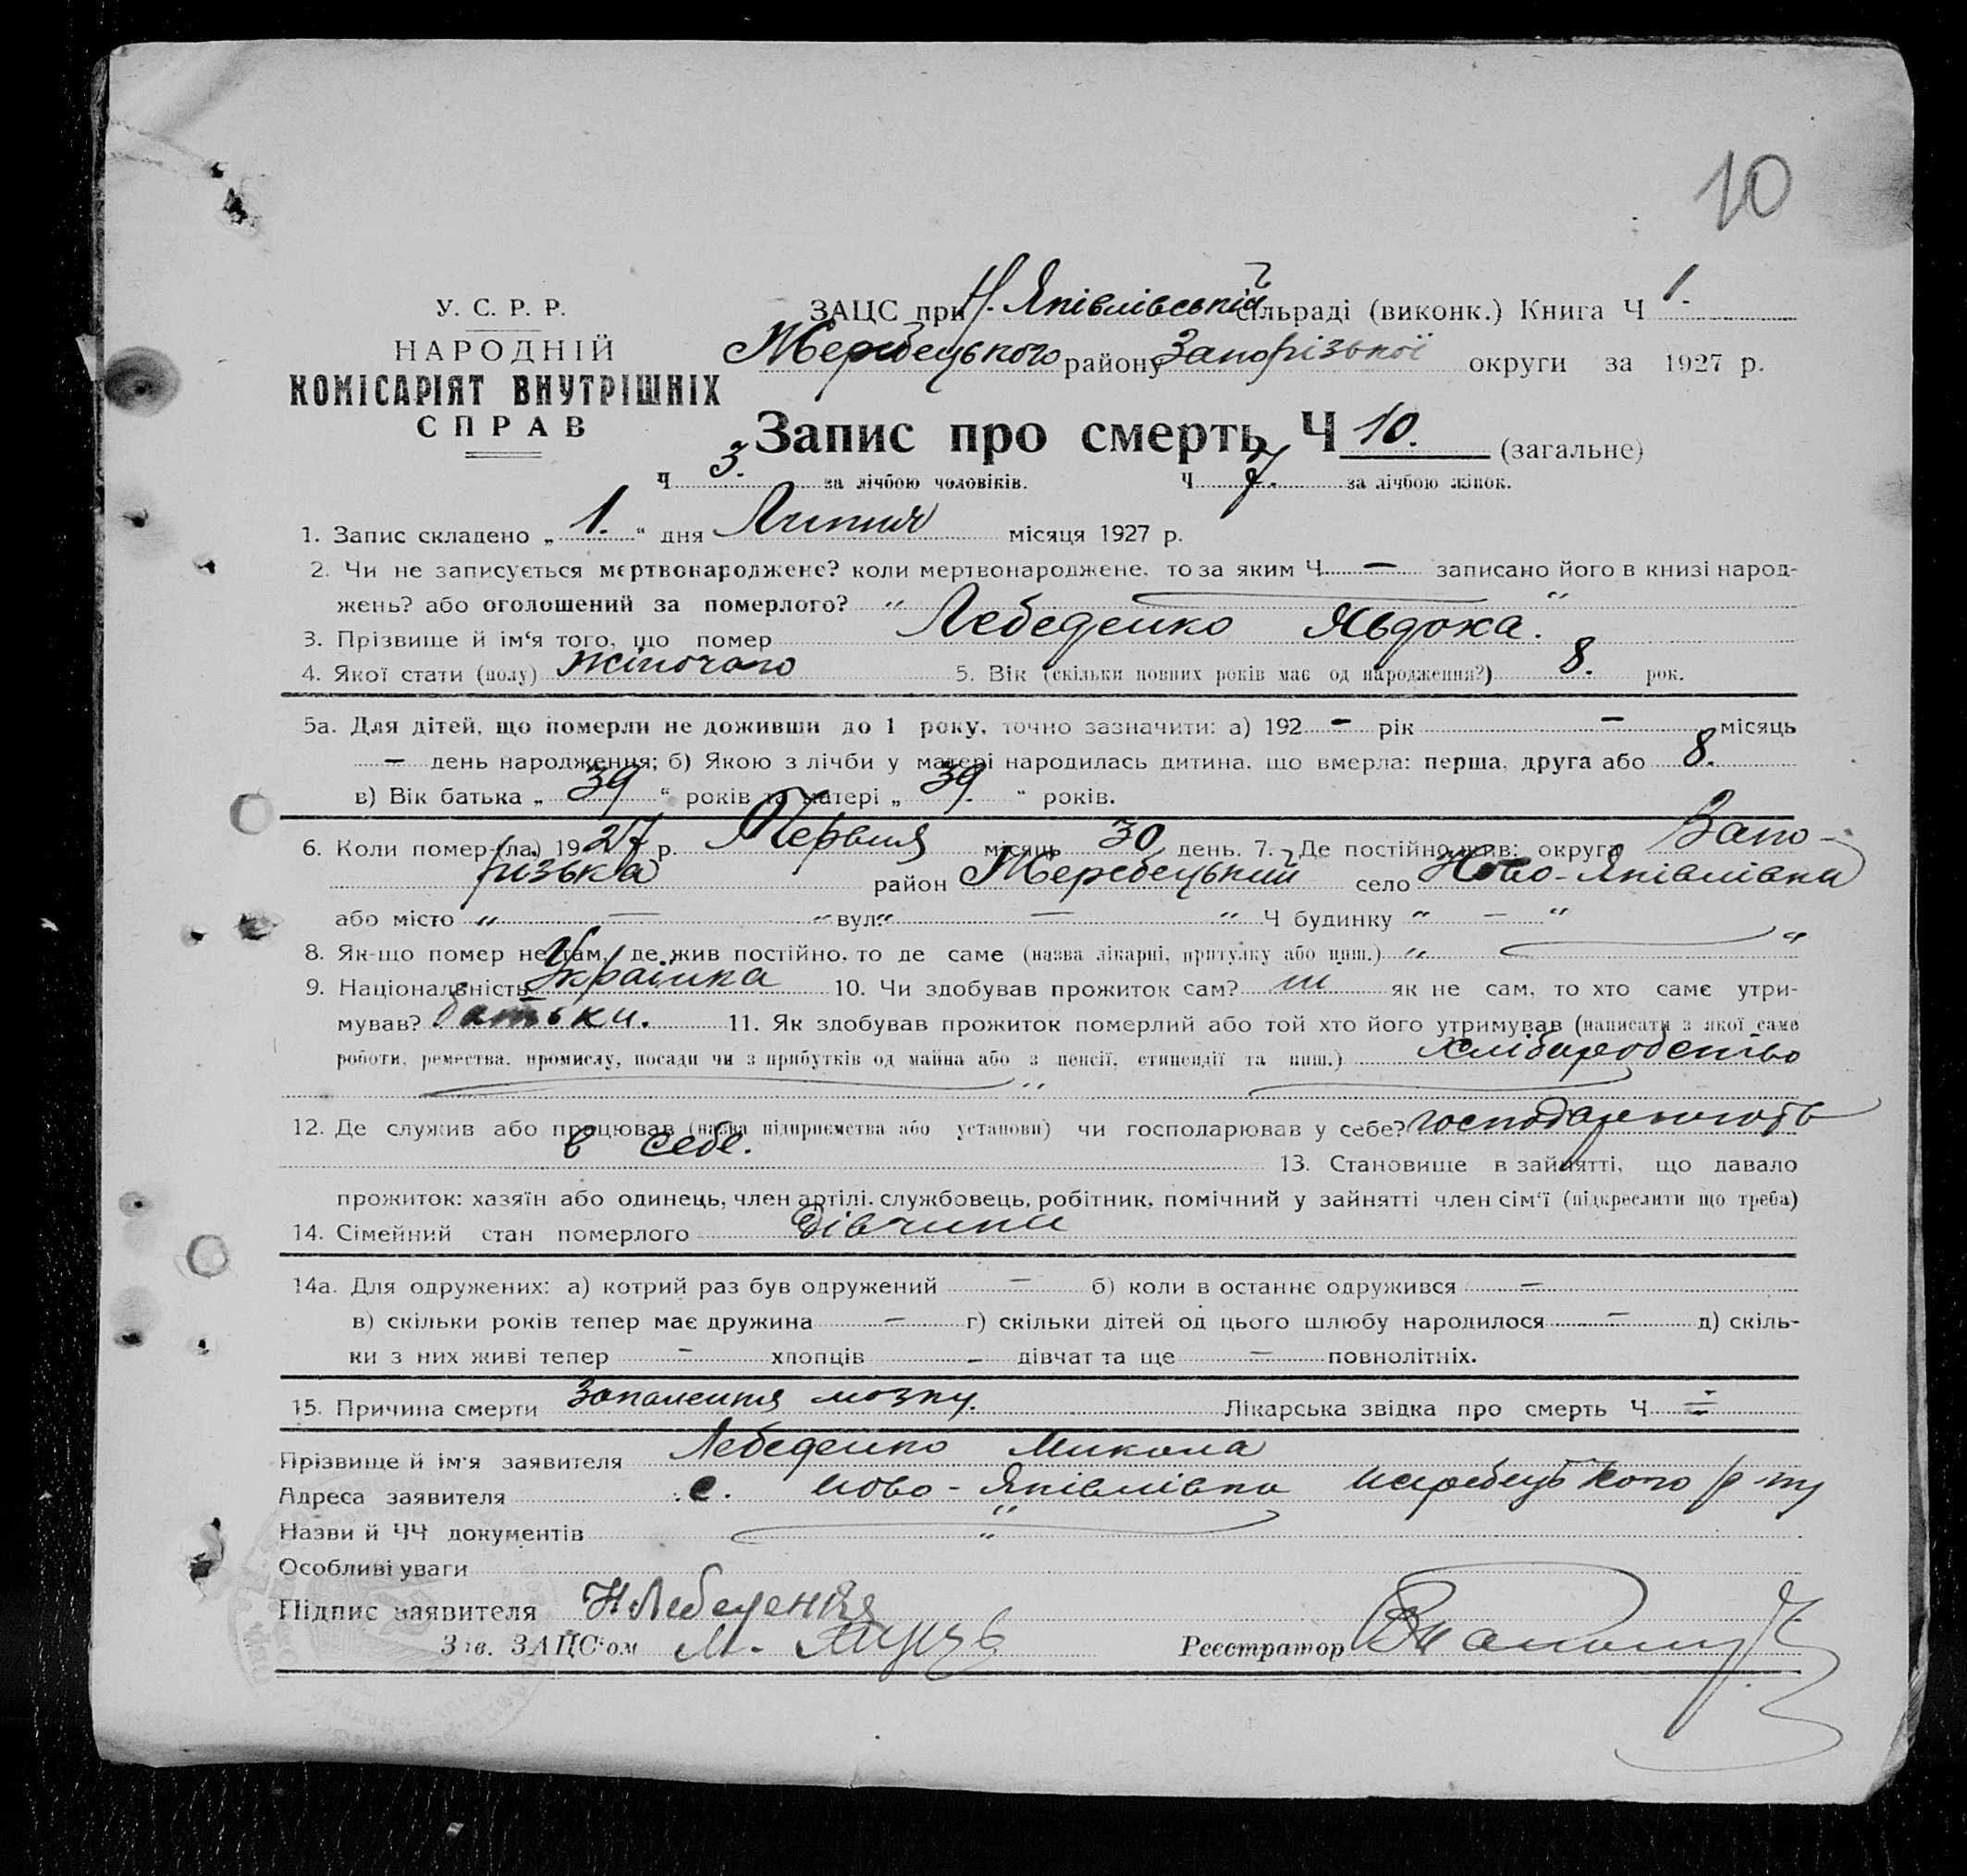 10
У. С. Р. Р.
НАРОДНІЙ
КОМІСАРІЯТ ВНУТРІШНІХ
СПРАВ
ЗАЦС при Н. Яківлівській сільраді (виконк.) Книга Ч 1.
Жеребецького району Запорізької округи за 1927 р.
Запис про смерть Ч 10. (загальне)
Ч 3. за лічбою чоловіків. Ч 7. за лічбою жінок.
1. Запис складено „ 1. “ дня Липня місяця 1927 р.
2. Чи не записується мертвонароджене? коли мертвонароджене, то за яким Ч — записано його в книзі народ-
жень? або оголошений за померлого? „ “
3. Прізвище й ім‘я того, що помер Лебеденко Явдоха.
4. Якої стати (полу) жіночого 5. Вік (скільки повних років має од народження?) 8. рок.
5а. Для дітей, що померли не доживши до 1 року, точно зазначити: а) 192 – рік – місяць
– день народження; б) Якою з лічби у матері народилась дитина, що вмерла: перша, друга або 8.
в) Вік батька „ 39 “ років та матері „ 39 “ років.
6. Коли помер (ла) 1927 р. Червня місяць 30 день. 7. Де постійно жив: округа Запо-
різька район Жеребецький село Ново-Яківлівка
або місто „ — “ вул. „ — “ Ч будинку “ – “
8. Як-що помер не там, де жив постійно, то де саме (назва лікарні, притулку або инш.) „ “
9. Національність Українка 10. Чи здобував прожиток сам? ні як не сам, то хто саме утри-
мував? батьки. 11. Як здобував прожиток померлий або той хто його утримував (написати з якої саме
роботи, ремества, промислу, посади чи з прибутків од майна або з пенсії, стипендії та инш.) хліборобство
„
12. Де служив або працював (назва підприємства або установи) чи господарював у себе? господарюють
в себе. 13. Становище в зайнятті, що давало
прожиток: хазяїн або одинець, член артілі, службовець, робітник, помічний у зайнятті член сім‘ї (підкреслити що треба)
14. Сімейний стан померлого Дівчина
14а. Для одружених: а) котрий раз був одружений — б) коли в останнє одружився –
в) скільки років тепер має дружина — г) скільки дітей од цього шлюбу народилося – д) скіль-
ки з них живі тепер – хлопців – дівчат та ще — повнолітніх.
15. Причина смерти Запалення мозку. Лікарська звідка про смерть Ч –
Прізвище й ім‘я заявителя Лебеденко Микола
Адреса заявителя с. Ново-Яківлівка Жеребецького р-ну
Назви й ЧЧ документів „
Особливі уваги
Підпис заявителя Н Лебеденко
Зав. ЗАЦС‘ом М.
Реєстратор